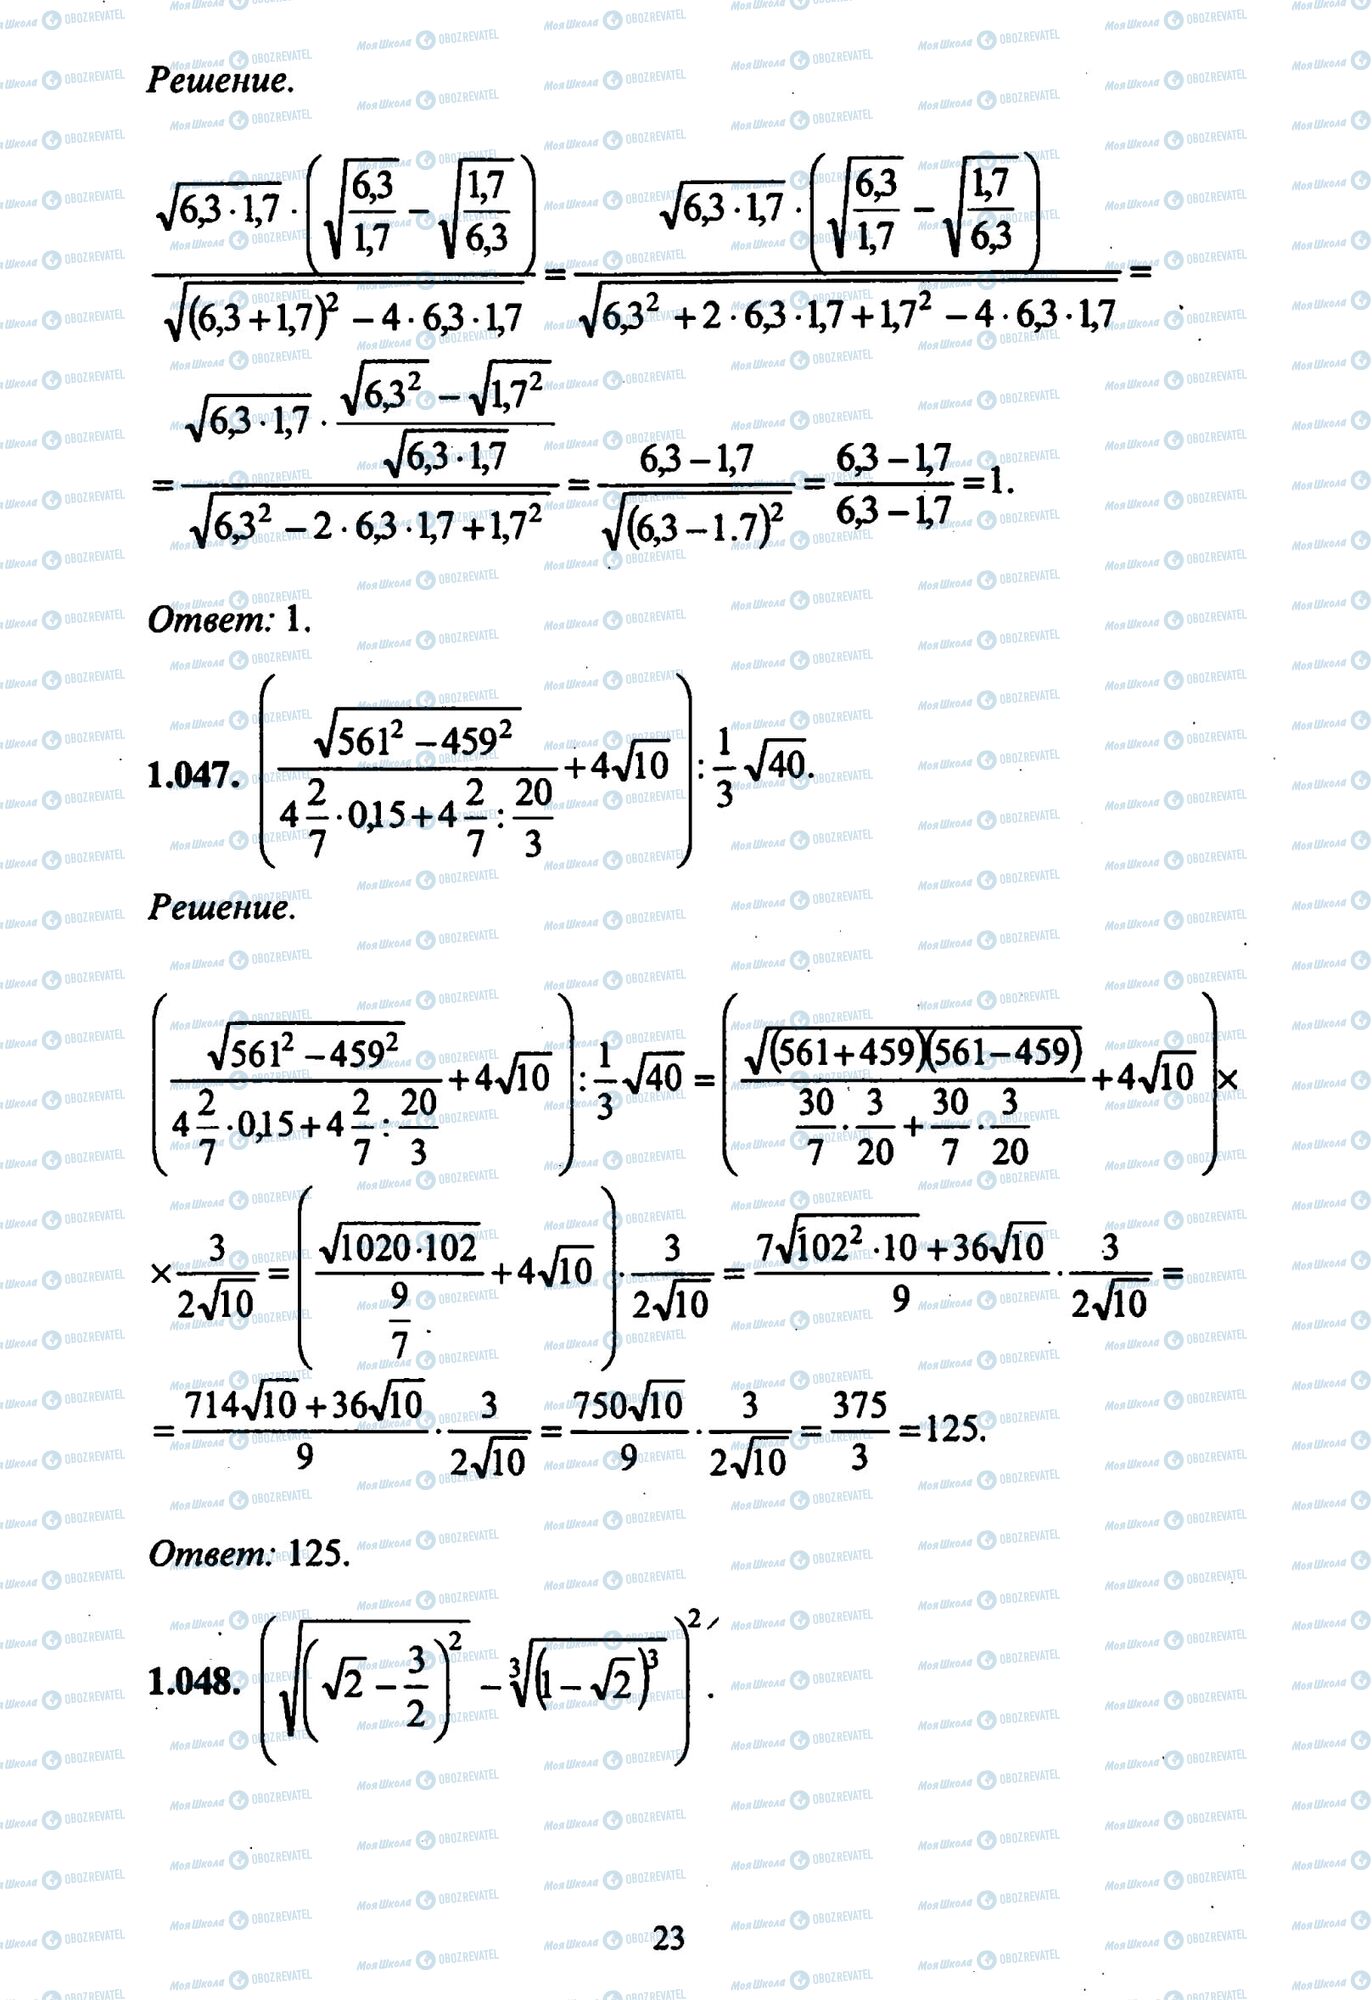 Решение.
\frac{\sqrt{6,3 \cdot 1,7} \cdot \left(\sqrt{\frac{6,3}{1,7}} - \sqrt{\frac{1,7}{6,3}}\right)}{\sqrt{(6,3+1,7)^2 - 4 \cdot 6,3 \cdot 1,7}} = \frac{\sqrt{6,3 \cdot 1,7} \cdot \left(\sqrt{\frac{6,3}{1,7}} - \sqrt{\frac{1,7}{6,3}}\right)}{\sqrt{6,3^2 + 2 \cdot 6,3 \cdot 1,7 + 1,7^2 - 4 \cdot 6,3 \cdot 1,7}} =
= \frac{\sqrt{6,3 \cdot 1,7} \cdot \frac{\sqrt{6,3^2} - \sqrt{1,7^2}}{\sqrt{6,3 \cdot 1,7}}}{\sqrt{6,3^2 - 2 \cdot 6,3 \cdot 1,7 + 1,7^2}} = \frac{6,3 - 1,7}{\sqrt{(6,3 - 1.7)^2}} = \frac{6,3 - 1,7}{6,3 - 1,7} = 1.
Ответ: 1.
1.047. \left(\frac{\sqrt{561^2 - 459^2}}{4\frac{2}{7} \cdot 0,15 + 4\frac{2}{7} : \frac{20}{3}} + 4\sqrt{10}\right) : \frac{1}{3}\sqrt{40}.
Решение.
\left(\frac{\sqrt{561^2 - 459^2}}{4\frac{2}{7} \cdot 0,15 + 4\frac{2}{7} : \frac{20}{3}} + 4\sqrt{10}\right) : \frac{1}{3}\sqrt{40} = \left(\frac{\sqrt{(561+459)(561-459)}}{\frac{30}{7} \cdot \frac{3}{20} + \frac{30}{7} \cdot \frac{3}{20}} + 4\sqrt{10}\right) ×
× \frac{3}{2\sqrt{10}} = \left(\frac{\sqrt{1020 \cdot 102}}{\frac{9}{7}} + 4\sqrt{10}\right) \cdot \frac{3}{2\sqrt{10}} = \frac{7\sqrt{102^2 \cdot 10} + 36\sqrt{10}}{9} \cdot \frac{3}{2\sqrt{10}} =
= \frac{714\sqrt{10} + 36\sqrt{10}}{9} \cdot \frac{3}{2\sqrt{10}} = \frac{750\sqrt{10}}{9} \cdot \frac{3}{2\sqrt{10}} = \frac{375}{3} = 125.
Ответ: 125.
1.048. \left(\sqrt{\left(\sqrt{2} - \frac{3}{2}\right)^2} - \sqrt[3]{(1 - \sqrt{2})^3}\right)^2.
23
МояШкола OBOZREVATEL